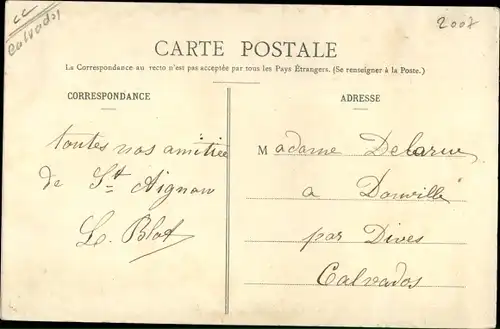 cc
Calvados
2007
CARTE POSTALE
La Correspondance au recto n'est pas acceptée par tous les Pays Étrangers. (Se renseigner à la Poste.)
CORRESPONDANCE
toutes nos amitiée
de St Aignan
L. Blot
ADRESSE
Madame Delarue
a Douville
par Dives
Calvados